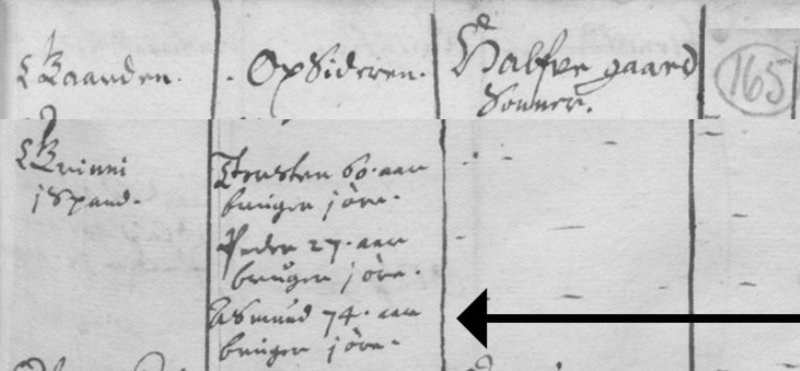 Gaarden.
Opsideren.
Halfve gaard
Sønner.
165
Grinni
j Spand.
Torsten 60. aar
bruger j øre.
Peder 27. aar
bruger j øre.
Asmund 74. aar
bruger j øre.